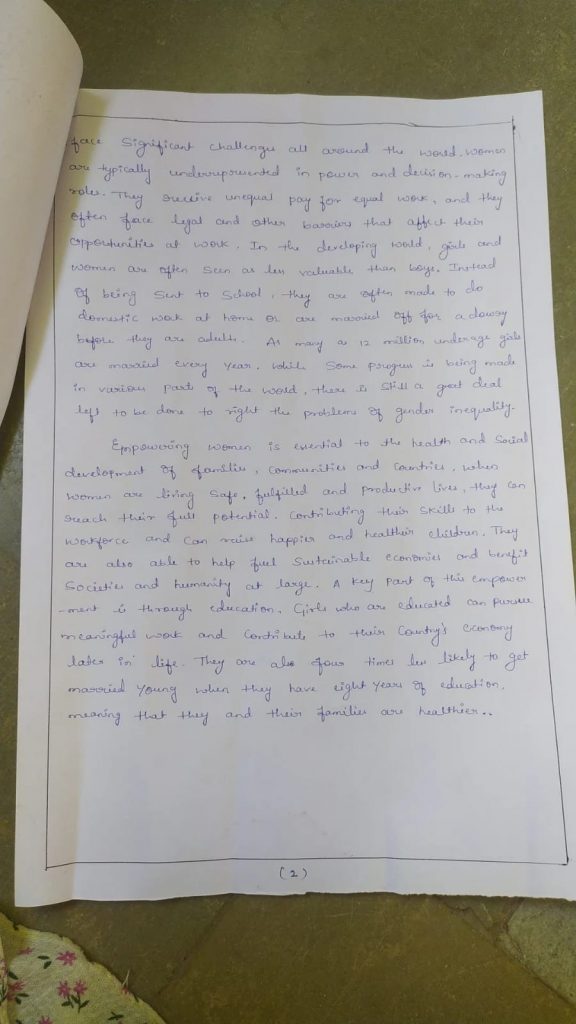 face Significant challenges all around the world. women
are typically underrepresented in power and decision-making
roles. They receive unequal pay for equal work, and they
often face legal and other barriers that affect their
opportunities at work. In the developing world, girls and
women are often seen as less valuable than boys. Instead
Of being sent to School, they are often made to do
domestic work at home or are married off for a dowry
before they are adults. As many as 12 million underage girls
are married every year. while Some progress is being made
in various part of the world, there is still a great deal
left to be done to right the problems of gender inequality.
Empowering women is essential to the health and Social
development of families, Communities and Countries, when
women are living Safe, fulfilled and productive lives, they can
reach their full potential. Contributing their skills to the
workforce and can raise happier and healthier children. They
are also able to help fuel Sustainable economies and benefit
Societies and humanity at large. A key part of this empower
-ment is through education. Girls who are educated can pursue
meaningful work and Contribute to their Country's economy
later in life. They are also four times less likely to get
married young when they have eight years of education,
meaning that they and their families are healthier..
(2)